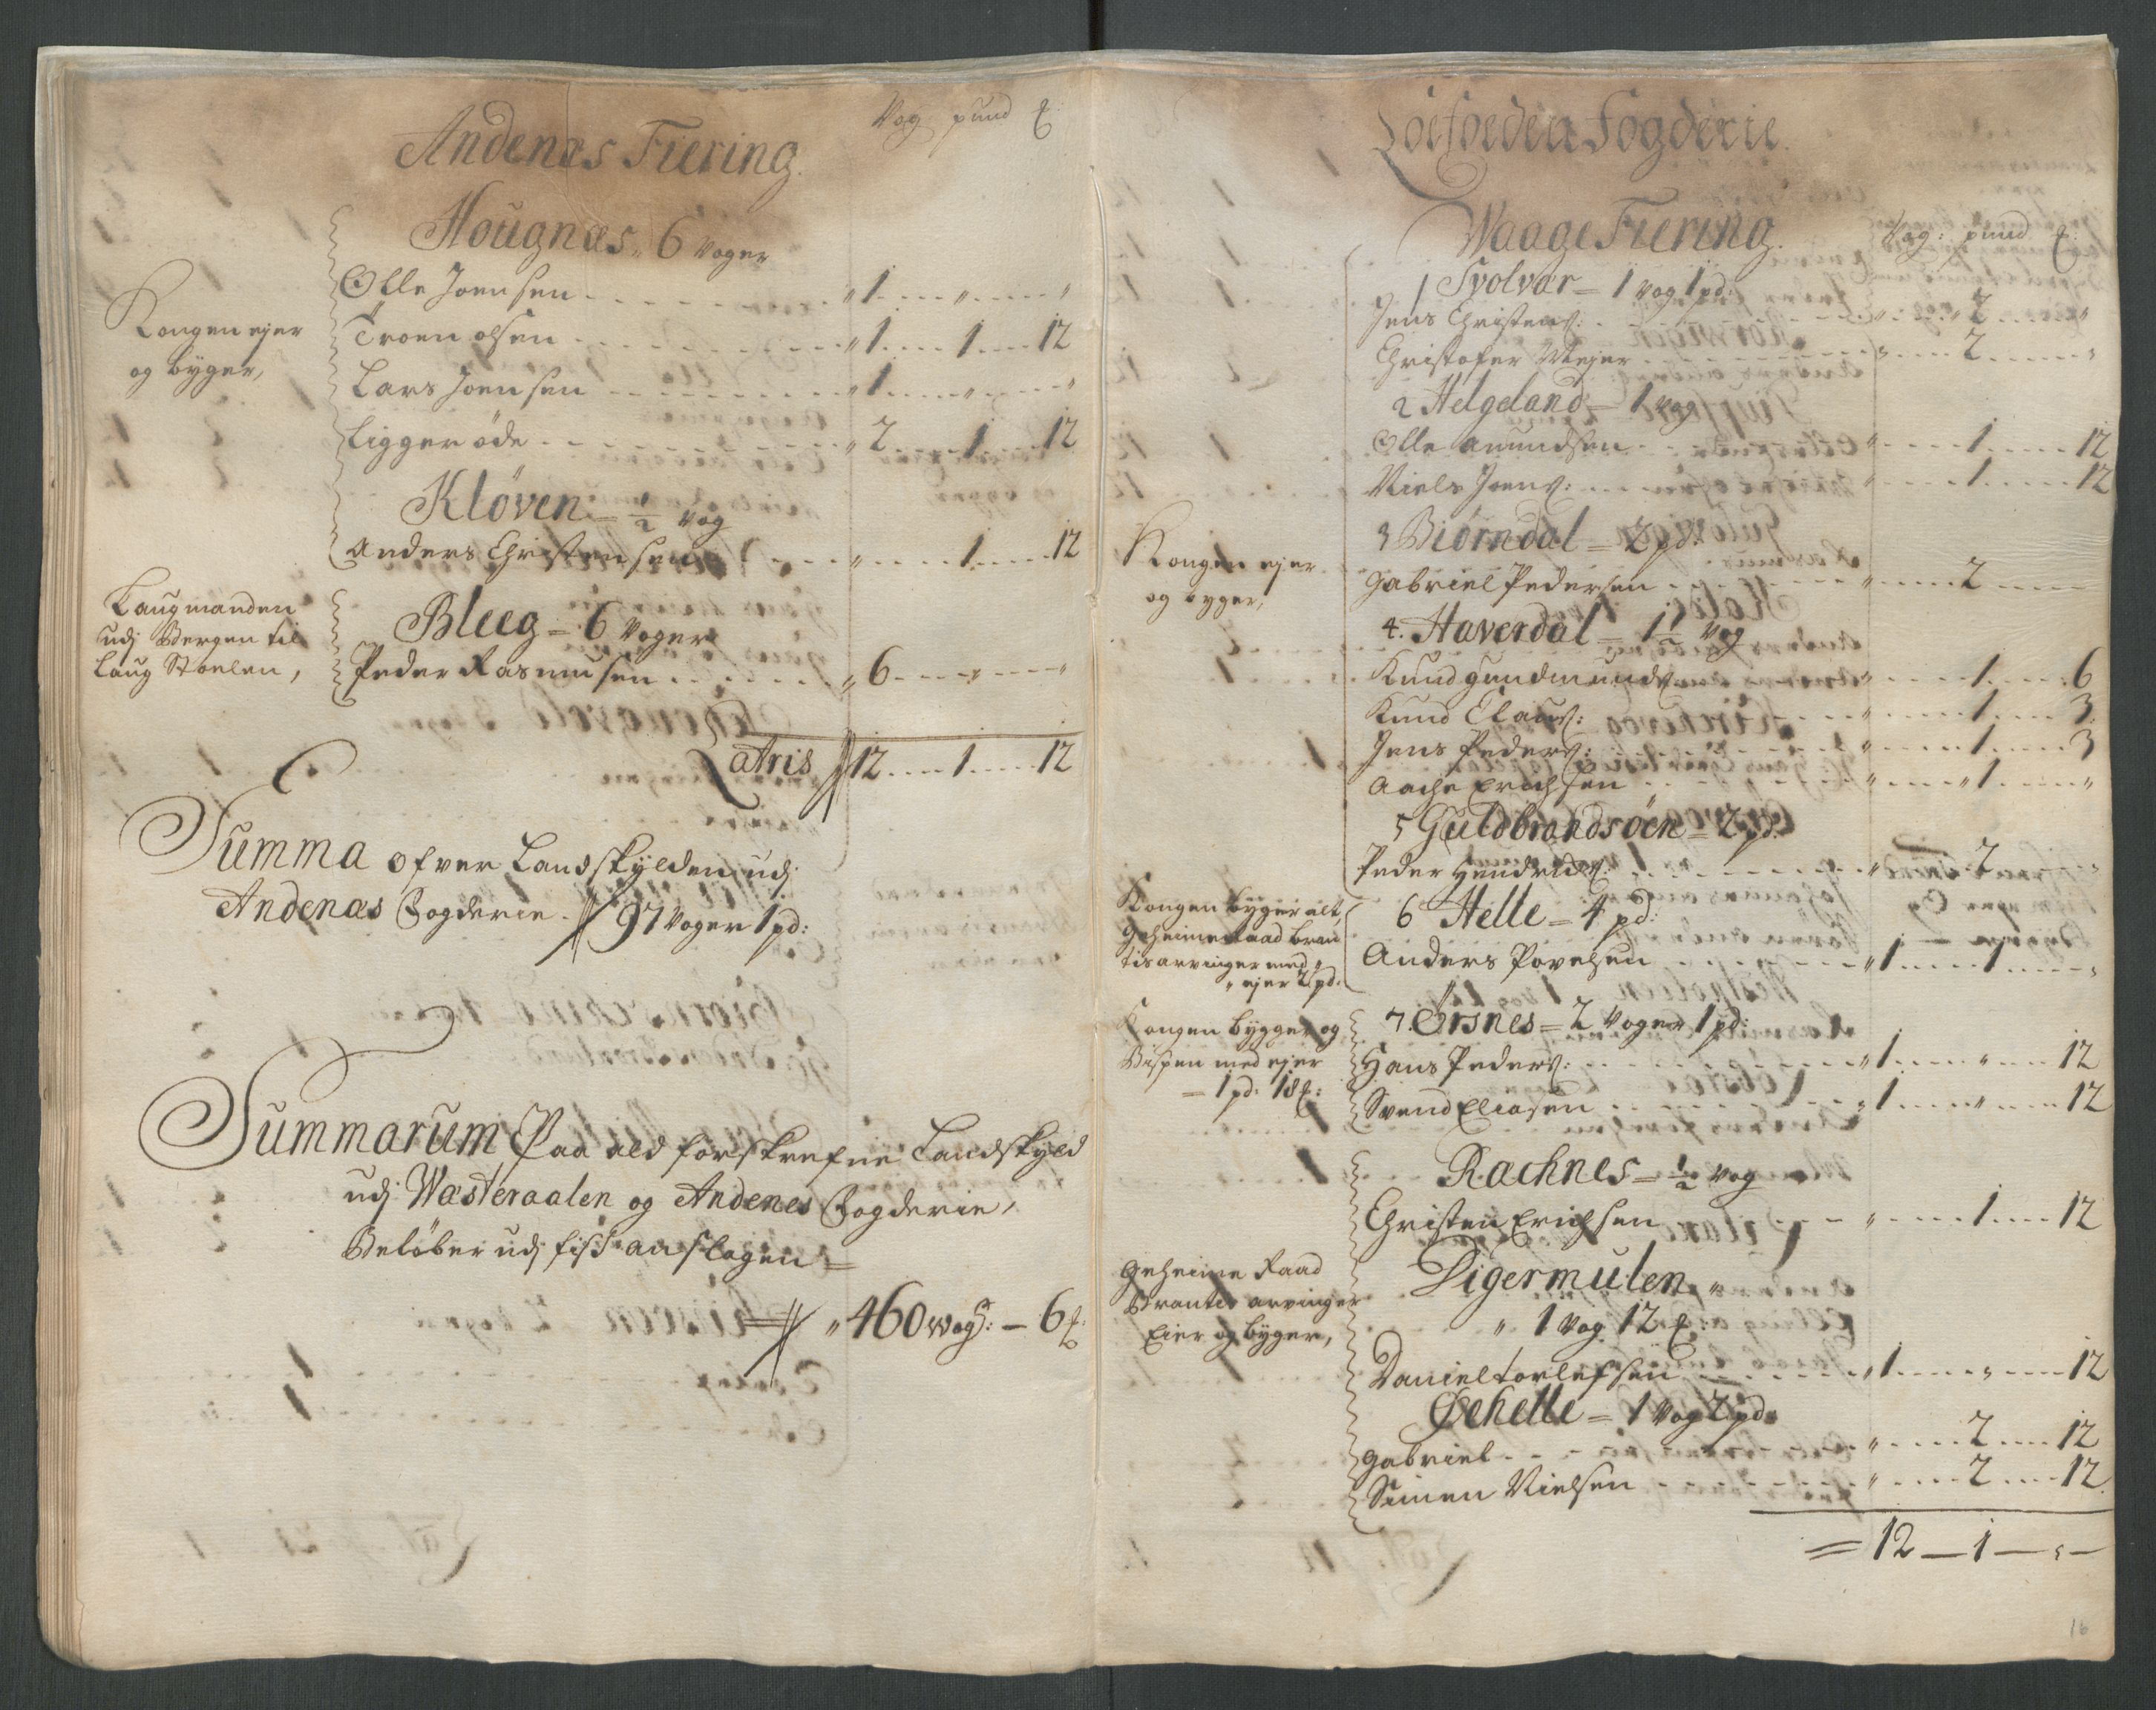 Vog pund ℔
Andenæs Fiering.
Hougnæs 6 voger
Olle Joensen " 1 " "
Troen olsen " 1 1 12
Kongen ejer
og byger,
Lars Joensen " 1 " "
ligger öde " 2 1 12
Klöven = ½ vog
Anders Christensen " 1 12
Laugmanden
udj Bergen til
Laug Stoelen,
Bleeg = 6 voger
Peder Rasmusen " 6 " "
Latris 12 1 12
Summa ofver Landskylden udj
Andenæs Fogderie 97 voger 1 pd:
Summarum Paa ald forskrefne Landskyld
udj Wæsteraalen og Andenes Fogderie,
Beløber udj fisk anslagen =
" 460 wog: – 6 ℔
Loefoeden Fogderie.
Waage Fiering.
Vog: pund ℔:
1 Svolvær = 1 vog 1 pd:
Jens Christens: " 2 "
Christofer Mejer " 2 "
2 Helgeland = 1 vog
Olle Amundsen " 1 12
Niels Joens: " 1 12
3 Biörndal = 2 pd:
Kongen ejer
og byger,
Gabriel Pedersen " 2
4. Haverdal = 1½ vog
Knud Gundmunds " 1 6
Knud Claus: " 1 3
Jens Peders: " 1 3
Aache Erichsen " 1 "
5 Guldbrandsöen = 2 pd:
Peder Hendrichs: " 2 "
Kongen byger alt,
Geheime Raad Bran
tis arvinger med
" ejer 2 pd:
6 Helle = 4 pd:
Anders Povelsen " 1 1 "
Kongen bygger og
Bispen med ejer
= 1 pd: 18 ℔:
7. Örsnes = 2 voger 1 pd:
Hans Peders: " 1 " 12
Svend Eliasen " 1 " 12
Rachnes = ½ vog
Christen Erichsen " 1 12
Geheime Raad
Brantes arvinger
Eier og byger,
Digermulen "
" 1 vog 12 ℔
Daniel torlefsen " 1 " 12
Øehelle = 1 vog 2 pd:
Gabriel " 2 12
Simen Nielsen " 2 12
= 12 – 1 – " –
16